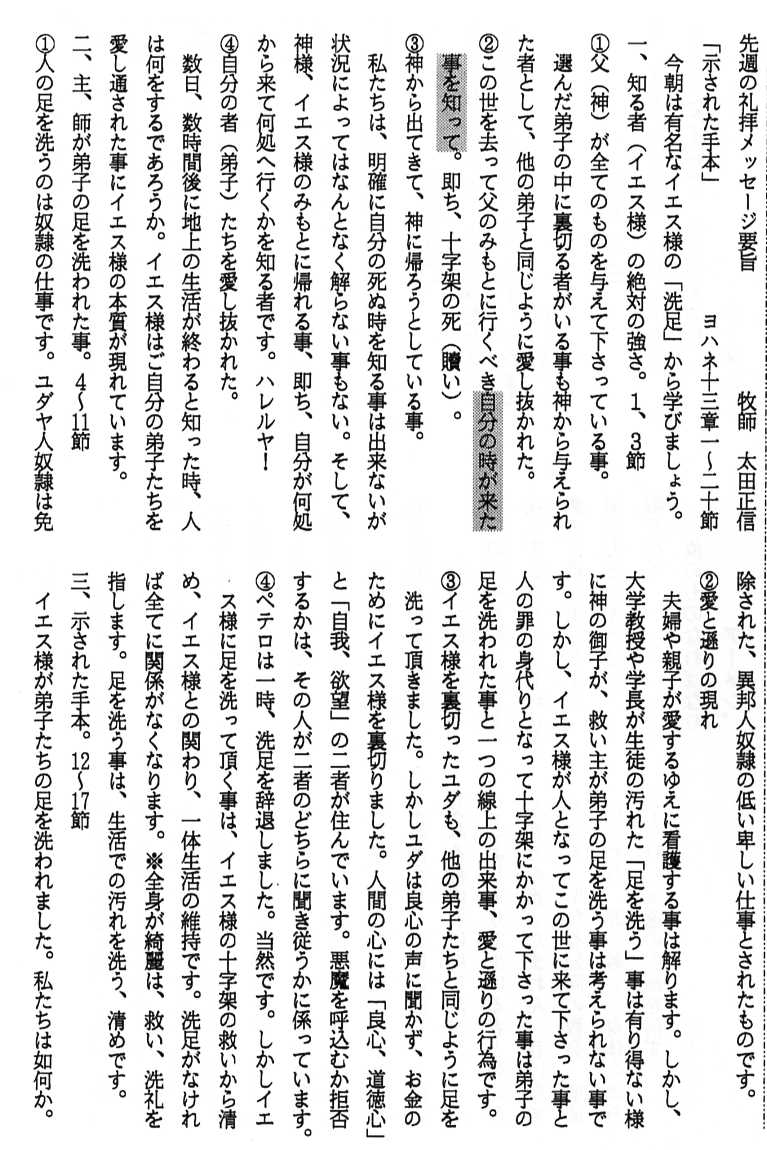 先週の礼拝メッセージ要旨　　　　牧師　太田正信
「示された手本」　　　　ヨハネ十三章一〜二十節
今朝は有名なイエス様の「洗足」から学びましょう。
一、知る者（イエス様）の絶対の強さ。1、3節
①父（神）が全てのものを与えて下さっている事。
選んだ弟子の中に裏切る者がいる事も神から与えられ
た者として、他の弟子と同じように愛し抜かれた。
②この世を去って父のみもとに行くべき自分の時が来た
事を知って。即ち、十字架の死（贖い）。
③神から出てきて、神に帰ろうとしている事。
私たちは、明確に自分の死ぬ時を知る事は出来ないが
状況によってはなんとなく解らない事もない。そして、
神様、イエス様のみもとに帰れる事、即ち、自分が何処
から来て何処へ行くかを知る者です。ハレルヤ！
④自分の者（弟子）たちを愛し抜かれた。
数日、数時間後に地上の生活が終わると知った時、人
は何をするであろうか。イエス様はご自分の弟子たちを
愛し通された事にイエス様の本質が現れています。
二、主、師が弟子の足を洗われた事。4〜11節
①人の足を洗うのは奴隷の仕事です。ユダヤ人奴隷は免
除された、異邦人奴隷の低い卑しい仕事とされたものです。
②愛と遜りの現れ
夫婦や親子が愛するゆえに看護する事は解ります。しかし、
大学教授や学長が生徒の汚れた「足を洗う」事は有り得ない様
に神の御子が、救い主が弟子の足を洗う事は考えられない事で
す。しかし、イエス様が人となってこの世に来て下さった事と
人の罪の身代りとなって十字架にかかって下さった事は弟子の
足を洗われた事と一つの線上の出来事、愛と遜りの行為です。
③イエス様を裏切ったユダも、他の弟子たちと同じように足を
洗って頂きました。しかしユダは良心の声に聞かず、お金の
ためにイエス様を裏切りました。人間の心には「良心、道徳心」
と「自我、欲望」の二者が住んでいます。悪魔を呼込むか拒否
するかは、その人が二者のどちらに聞き従うかに係っています。
④ペテロは一時、洗足を辞退しました。当然です。しかしイエ
ス様に足を洗って頂く事は、イエス様の十字架の救いから清
め、イエス様との関わり、一体生活の維持です。洗足がなけれ
ば全てに関係がなくなります。※全身が綺麗は、救い、洗礼を
指します。足を洗う事は、生活での汚れを洗う、清めです。
三、示された手本。12〜17節
イエス様が弟子たちの足を洗われました。私たちは如何か。